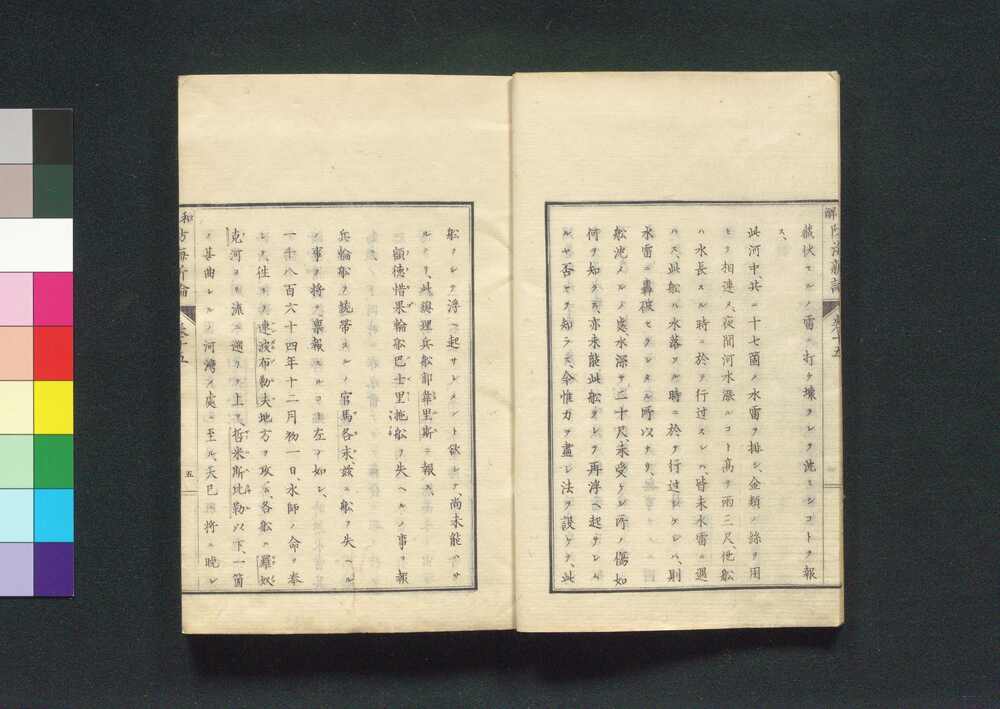 藏伏セルノ雷ニ打タ壊ラレヲ沈ミシコトヲ報
ス、
此河中、共ニ十七箇ノ水雷ヲ排シ、金類ノ線ヲ用
ヒヲ相連メ、夜間河水漲ルコト高ヲ兩三尺、他船
ハ水長スル時ニ於ヲ行過スレハ、皆未水雷ニ遇
ハス、此船ハ水落ツル時ニ於ヲ行過シケレハ、則
水雷ニ轟破セラレタル所以ナリ、
船沈メルノ處、水深サ二十尺、未受ケシ所ノ傷如
何ヲ知ラス、亦未能此船ヲレヲ再浮ヘ起サレル
ルヤ否ヤヲ知ラス、今惟力ヲ盡シ法ヲ設ケヲ、此
船ヲレヲ浮ヘ起サシメント欲シヲ、尚未能ハサ
ルナリ、此總理兵船部韋里斯ニ報ス
額德惜果輪船巴士里拖船ヲ失ヘルノ事ヲ報
兵輪船ヲ統帶スルノ官馬各未、茲ニ船ヲ失ヘル
ノ事ヲ將ヲ禀報スルコト左ノ如シ、
一千八百六十四年十二月初一日、水師ノ命ヲ奉
シ、往ヲ連波布勒夫地方ヲ攻ム、各船ニ羅奴
克河ヨリ流ニ遡リヲ上リ、哲米斯比勒以下、一箇
ノ甚曲レルノ河灣ノ處ニ至ル、天已ニ將ニ晩レ
解防海新論
卷十五
和防海新論
卷十五
五